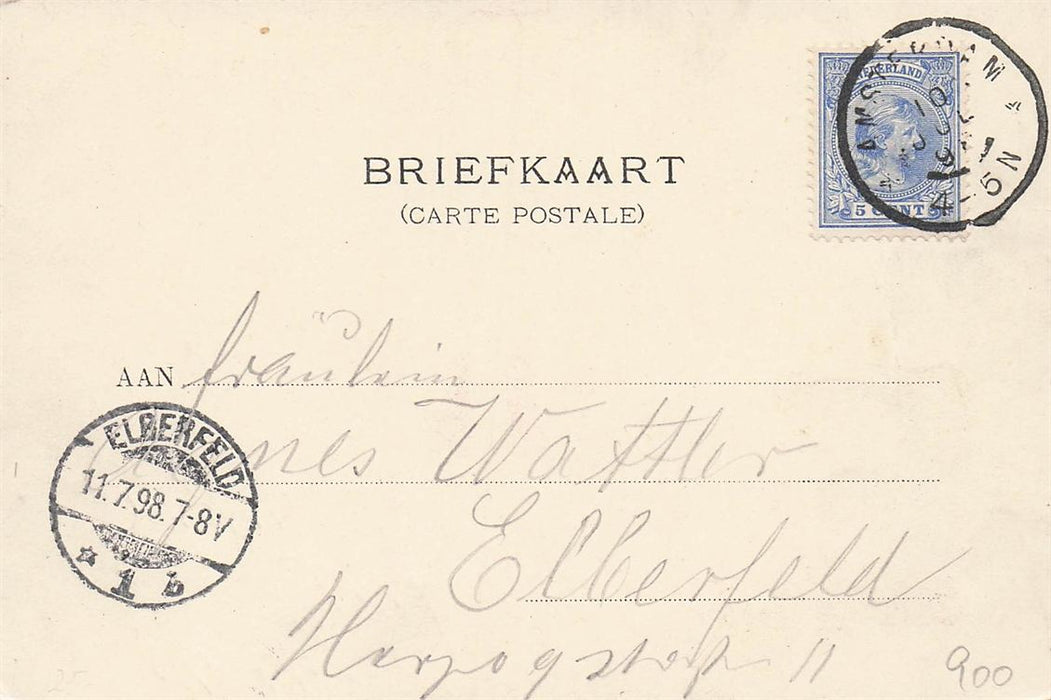 NEDERLAND
5 CENT
AMSTERDAM
4-5N
BRIEFKAART
(CARTE POSTALE)
AAN Fräulein
Wattler
Elberfeld
11
ELBERFELD
11.7.98.7-8V
* 1 b
900